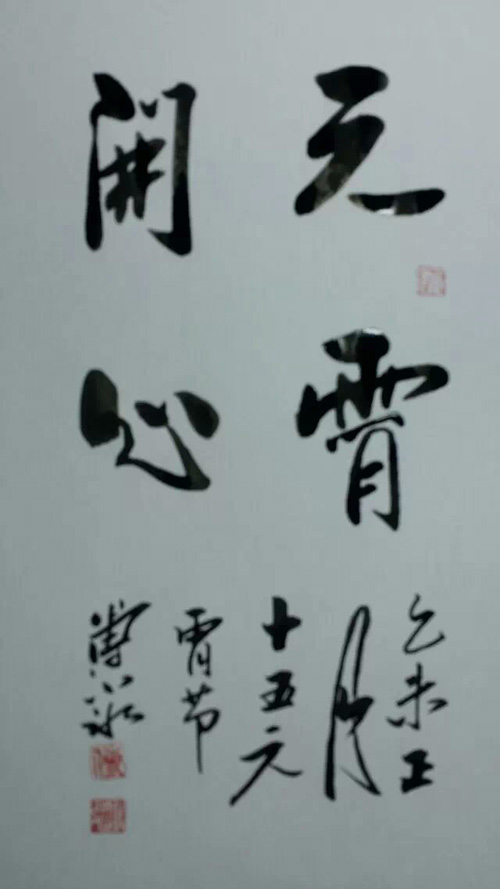 元宵
開心
乙未正
月
十五元
宵节